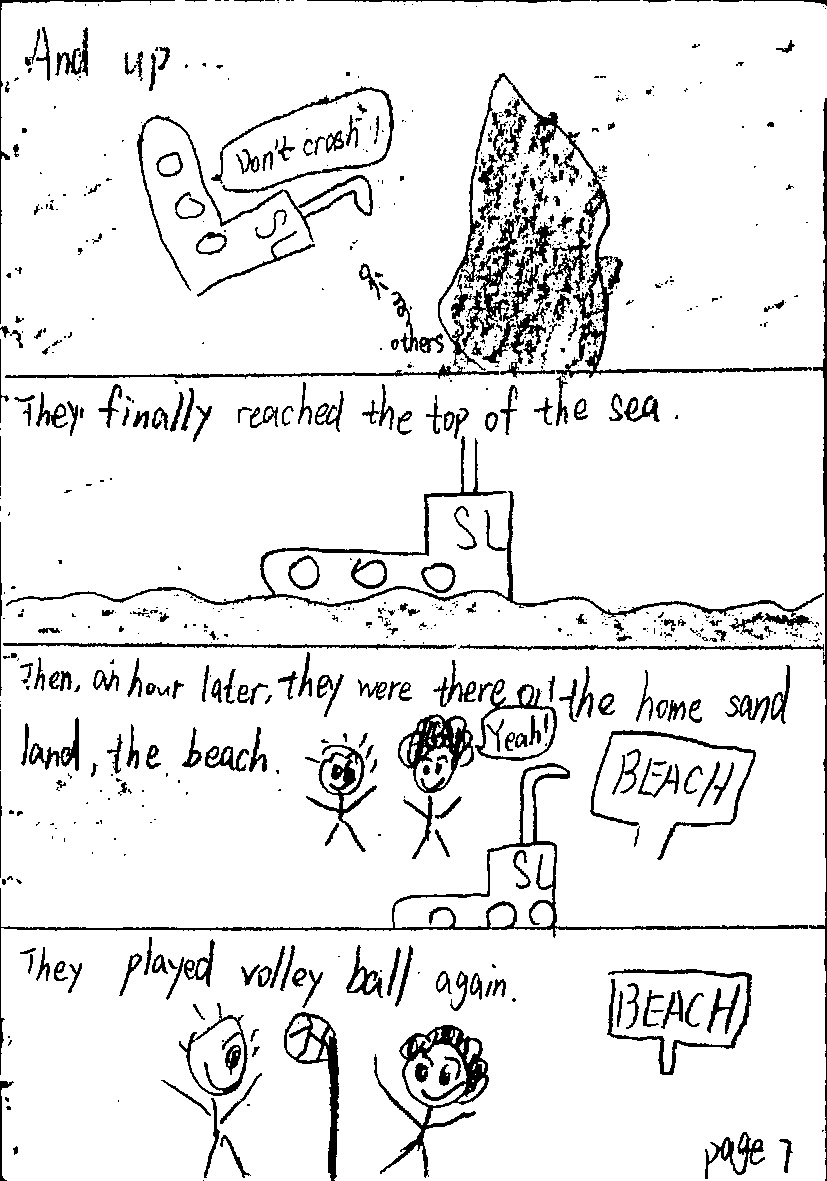 And up...
Don't crash!
SL
others
They finally reached the top of the sea.
SL
Then, an hour later, they were there on the home sand
land, the beach.
Yeah!
BEACH
SL
They played volley ball again.
BEACH
page 7